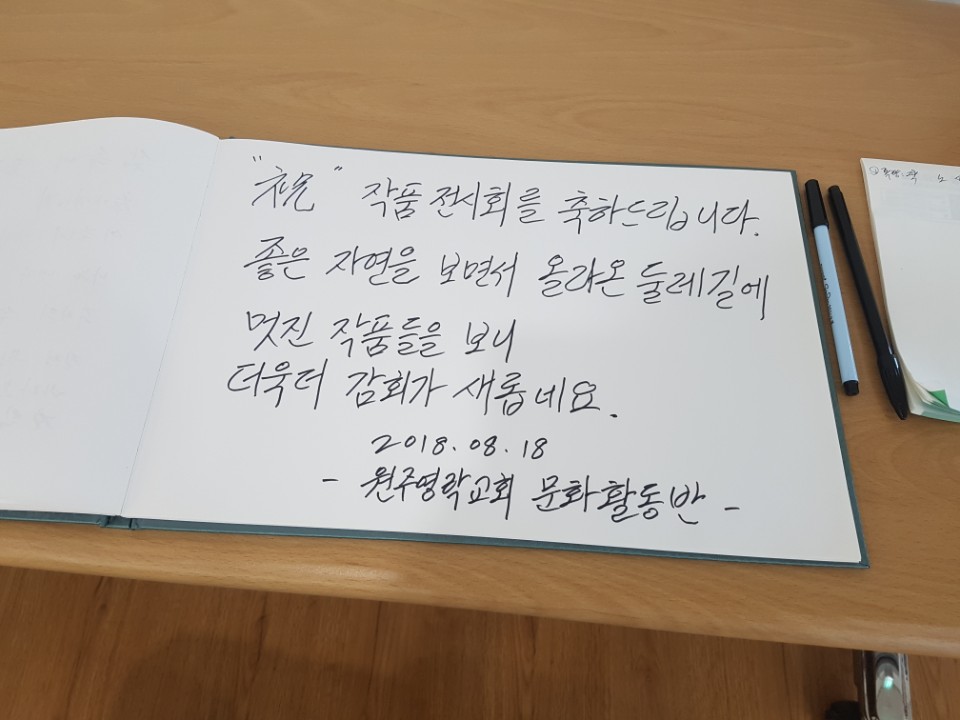 "祝" 작품 전시회를 축하드립니다.
좋은 자연을 보면서 올라온 둘레길에
멋진 작품들을 보니
더욱더 감회가 새롭네요.
2018.08.18
- 원주영락교회 문화활동반 -